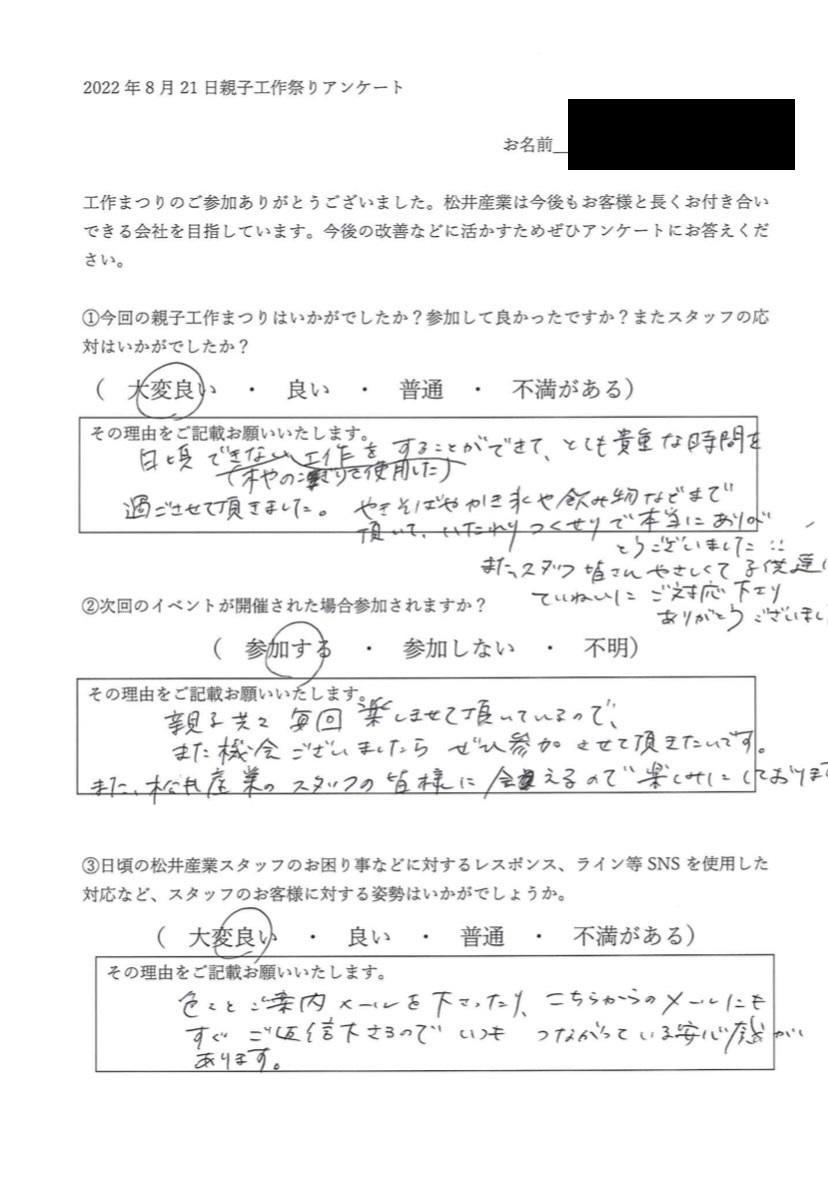 2022年8月21日親子工作祭りアンケート
お名前
工作まつりのご参加ありがとうございました。松井産業は今後もお客様と長くお付き合い
できる会社を目指しています。今後の改善などに活かすためぜひアンケートにお答えくだ
さい。
①今回の親子工作まつりはいかがでしたか?参加して良かったですか?またスタッフの応
対はいかがでしたか?
( 大変良い ・ 良い ・ 普通 ・ 不満がある)
その理由をご記載お願いいたします。
日頃 できない工作を することができて、とても貴重な時間を
(木やのこぎりを使用した)
過ごさせて頂きました。 やきそばやかき氷や飲み物などまで
頂いて、いたれりつくせりで本当にありが
とうございました!!
また、スタッフ皆さん やさしくて 子供達に
ていねいに ご対応下さり
ありがとうございまし
②次回のイベントが開催された場合参加されますか?
( 参加する ・ 参加しない ・ 不明)
その理由をご記載お願いいたします。
親子共々 毎回 楽しませて頂いているので、
また機会ございましたら ぜひ参加 させて頂きたいです。
また、松井産業の スタッフの 皆様に 会えるので 楽しみにしております
③日頃の松井産業スタッフのお困り事などに対するレスポンス、ライン等 SNS を使用した
対応など、スタッフのお客様に対する姿勢はいかがでしょうか。
( 大変良い ・ 良い ・ 普通 ・ 不満がある)
その理由をご記載お願いいたします。
色々とご案内メールを下さったり、こちらからのメールにも
すぐ ご返信下さるので いつも つながっている安心感が
あります。